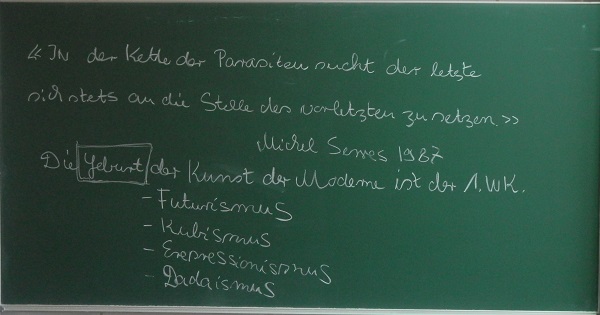 << In der Kette der Parasiten sucht der letzte
sich stets an die Stelle des vorletzten zu setzen. >>
Michel Serres 1987
Die Geburt der Kunst der Moderne ist der 1. WK.
- Futurismus
- Kubismus
- Expressionismus
- Dadaismus